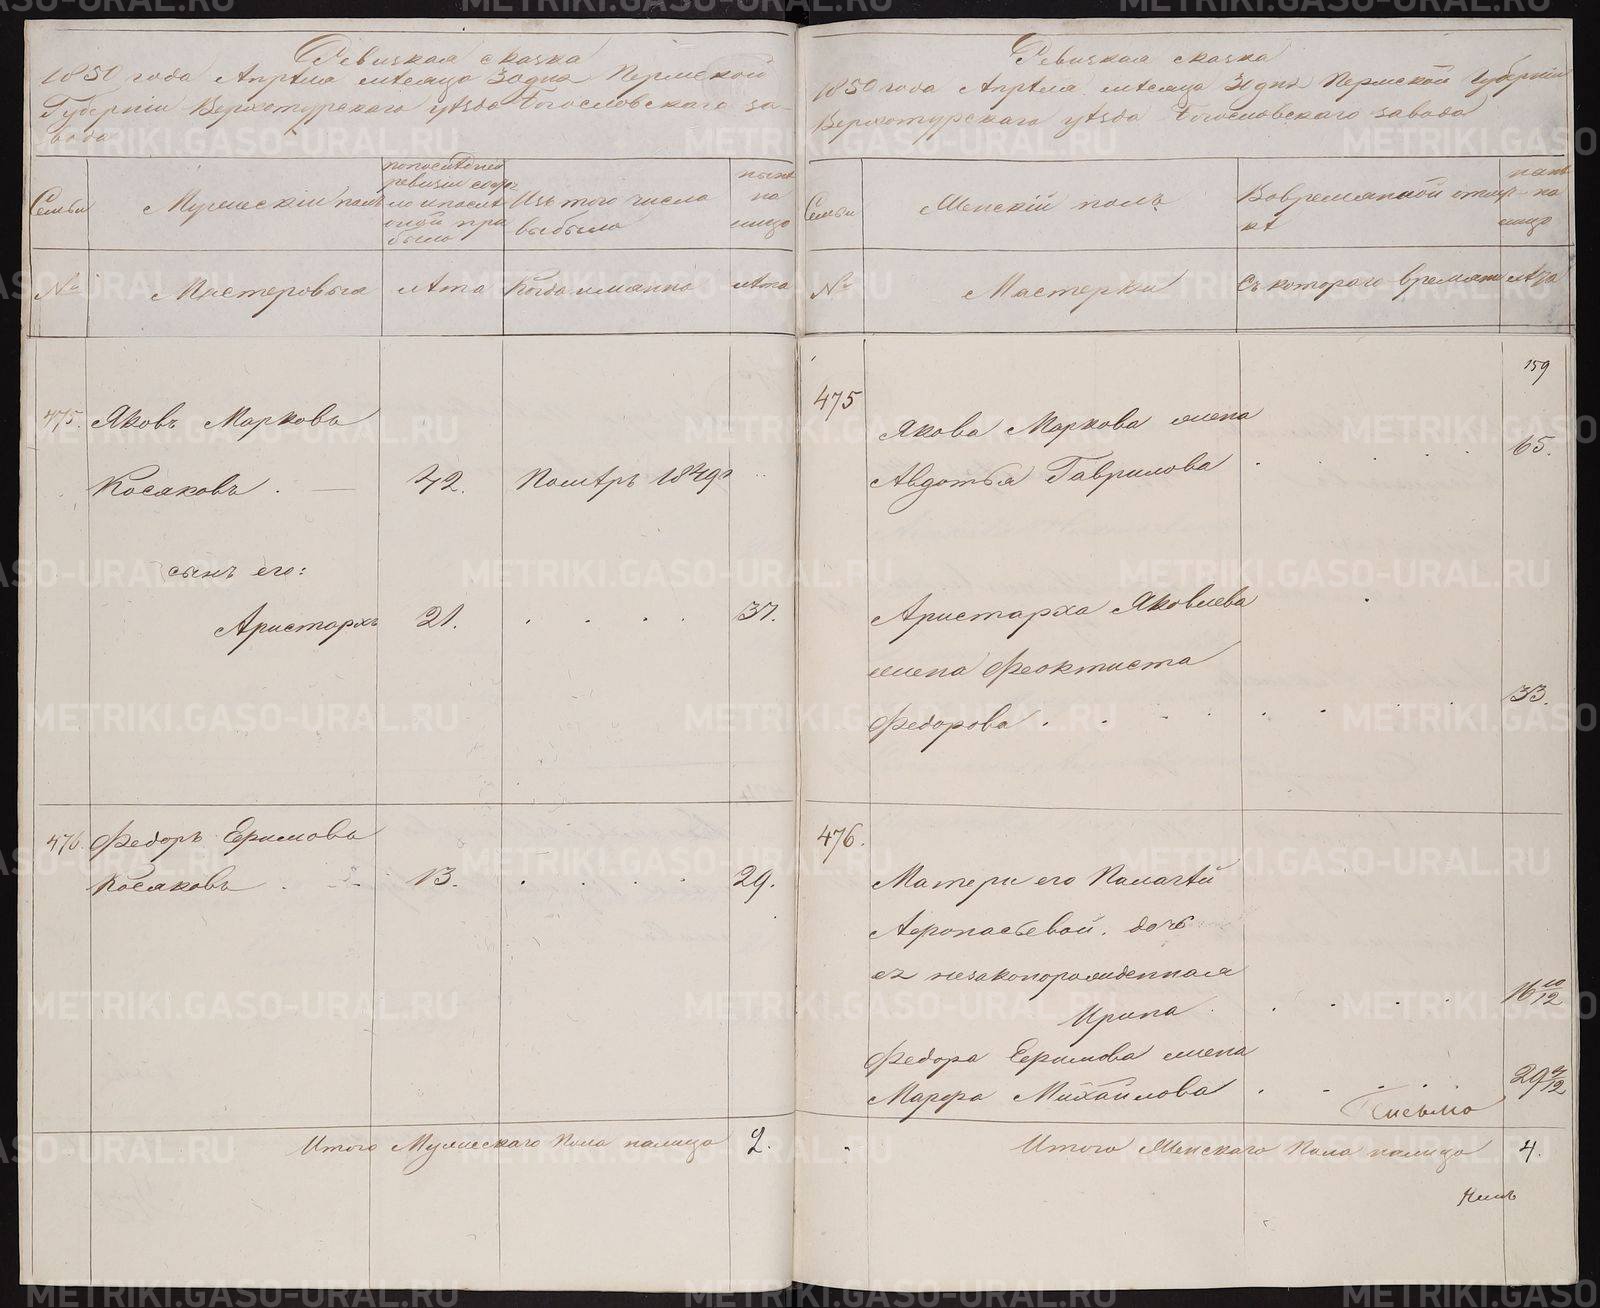 Ревизская сказка
1850 года Апреля месяца 30 дня Пермской
Губернiи Верхотурскаго уѣзда Богословскаго за-
вода
Семьи
Мужескiй полъ
по послѣдней
ревизiи состо-
яло и послѣ
оной при
было
Изъ того числа
выбыло
нынѣ
на
лицо
№
Мастеровыя
Лѣта
Когда именно
Лѣта
475.
Яковъ Марковъ
Косяковъ . —
42.
Помѣръ 1849г
сынъ его:
Аристархъ
21.
37.
476.
Федоръ Ефимовъ
Косяковъ
13.
29.
Итого Мужескаго пола налицо
2.
Ревизская сказка
1850 года Апрѣля месяца 30 дня Пермской Губернiи
Верхотурскаго уѣзда Богословскаго завода
Семьи
Женскiй полъ
Во временной отлуч-
кѣ
на
лицо
№
Мастерки
Съ котораго времяни
Лѣта
159
475
Якова Маркова жена
Авдотья Гаврилова
65.
Аристарха Яковлева
жена Феоктиста
Федорова
33.
476.
Матери его Палагѣй
Афонасьевой. дочь
ея незаконорожденная
Ирина
16 10/12
Федора Ефимова жена
Марфа Михайлова
29 9/12
Письмо
Итого Женскаго пола налицо
4.
METRIKI.GASO-URAL.RU